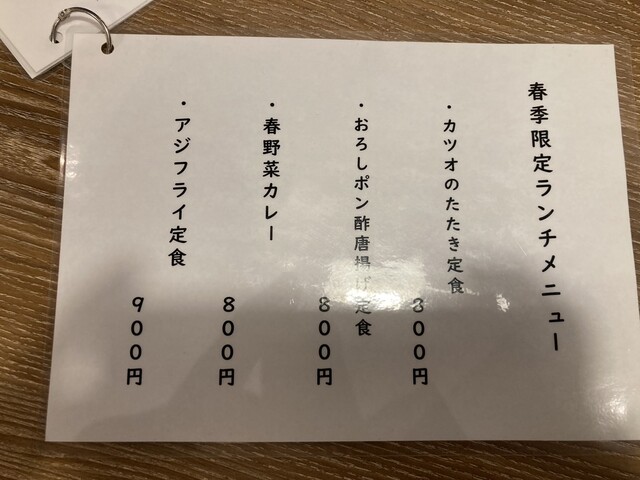 春季限定ランチメニュー
・カツオのたたき定食
800円
・おろしポン酢唐揚げ定食
800円
・春野菜カレー
800円
・アジフライ定食
900円